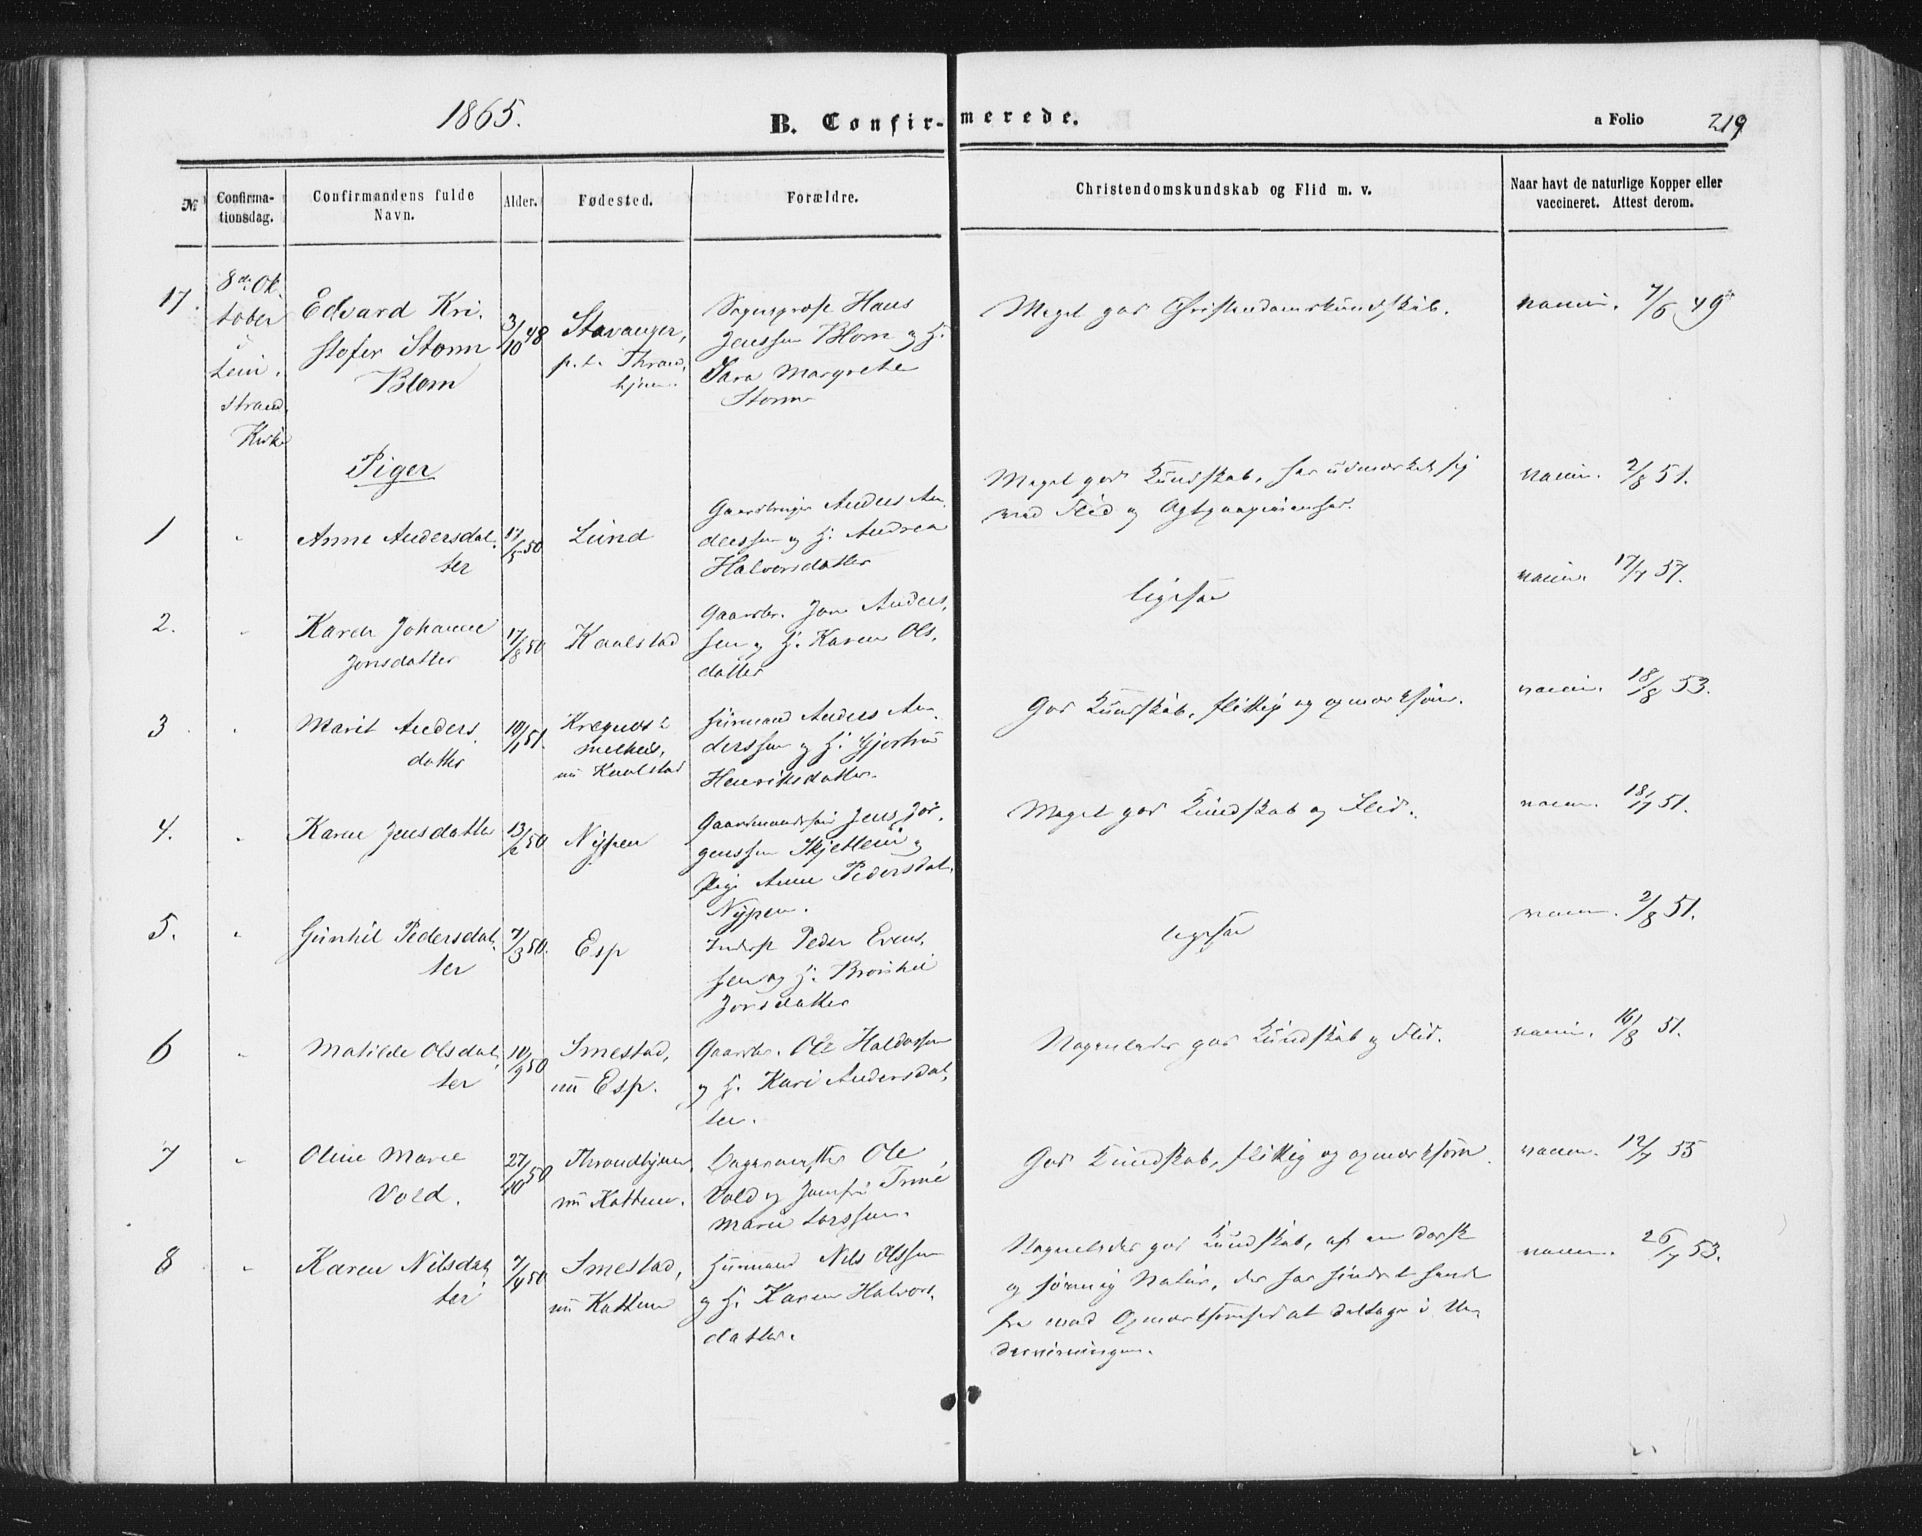 1865.
B. Confir-merede.
a Folio 219
№
Confirma-
tionsdag.
Confirmandens fulde
Navn.
Alder.
Fødested.
Forældre.
Christendomskundskab og Flid m. v.
Naar havt de naturlige Kopper eller
vaccineret. Attest derom.
17.
8de Ok
tober
i
Lein.
strand.
Kirke
Edvard Kri.
stofer Storm
Blom
3/10 48
Stavanger,
p. t. Thrond,
hjem.
Sognepræst Hans
Jenssen Blom og H.
Sara Margrete
Storm
Meget god Christendomskundskab.
vaccin. 7/6 49
Piger
1
Anne Andersdat,
ter
17/5 50
Lund
Gaardbruger Anders An,
derssen og H. Andrea
Halvorsdatter
Meget god Kundskab, har udmærket sig
ved Flid og
vaccin. 2/8 51.
2.
Karen Johanne
Jonsdatter
17/8 50
Kaalstad
Gaardbr. Jon Anders,
sen og H. Karen Ols,
datter
ligesaa
vaccin. 17/7 57.
3
Marit Anders,
datter
10/1 51.
Kregnes i
Melhus,
nu Kaalstad
Husmand Anders An,
derssen og H. Gjertru
Henriksdatter.
God Kundskab, flittig og opmærksom.
vaccin. 18/8 53.
4.
Karen Jensdatter
13/2 50
Nypen
Gaardmandssøn Jens Jør,
genssen Skjetlein og
Pige Anne Pedersdat,
Nypen.
Meget god Kundskab og Flid.
vaccin. 18/7 51.
5.
Gunhil Pedersdat,
ter
7/3 50.
Esp
Inderst Peder Evens,
sen og H. Brønhil
Jonsdatter
ligesaa
vaccin. 2/8 51.
6
Matilde Olsdat,
ter
10/9 50
Smestad,
nu Esp.
Gaardbr. Ole Haldorssen
og H. Kari Andersdat,
ter.
Nogenledes god Kundskab og Flid.
vaccin. 16/8 51.
7
Oline Marie
Vold.
27/10 50
Throndhjem
nu Kattem.
Ole
Vold og Jomfru Trine
Marie Larssen.
God Kundskab, flittig og opmærksom.
vaccin. 12/7 55
8
Karen Nilsdat,
ter
7/4 50
Smestad,
nu Kattem
Husmand Nils Olssen
og H. Karen Halvors,
datter.
Nogenledes god Kundskab, af en dorsk
og søvnig Natur, der har hindret hende
fra med Opmærksomhed at deltage i Un,
dervisningen.
vaccin. 26/7 53.